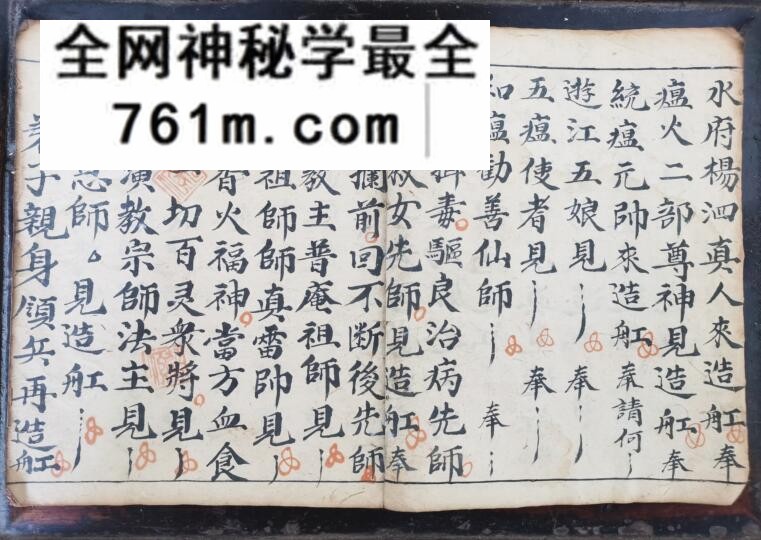 全网神秘学最全
761m.com
水府楊泗真人來造舡奉
瘟火二部尊神見造舡奉
統瘟元帥來造舡奉請何
遊江五娘見奉
五瘟使者見奉
和瘟勸善仙師奉
毒驅良治病先師
女先師見造舡奉
攔前回不斷後先師
教主普庵祖師見
祖師師真雷帥見
香火福神當方血食
一切百灵衆將見
演教宗師法主見
師見造舡
弟子親身領兵再造舡